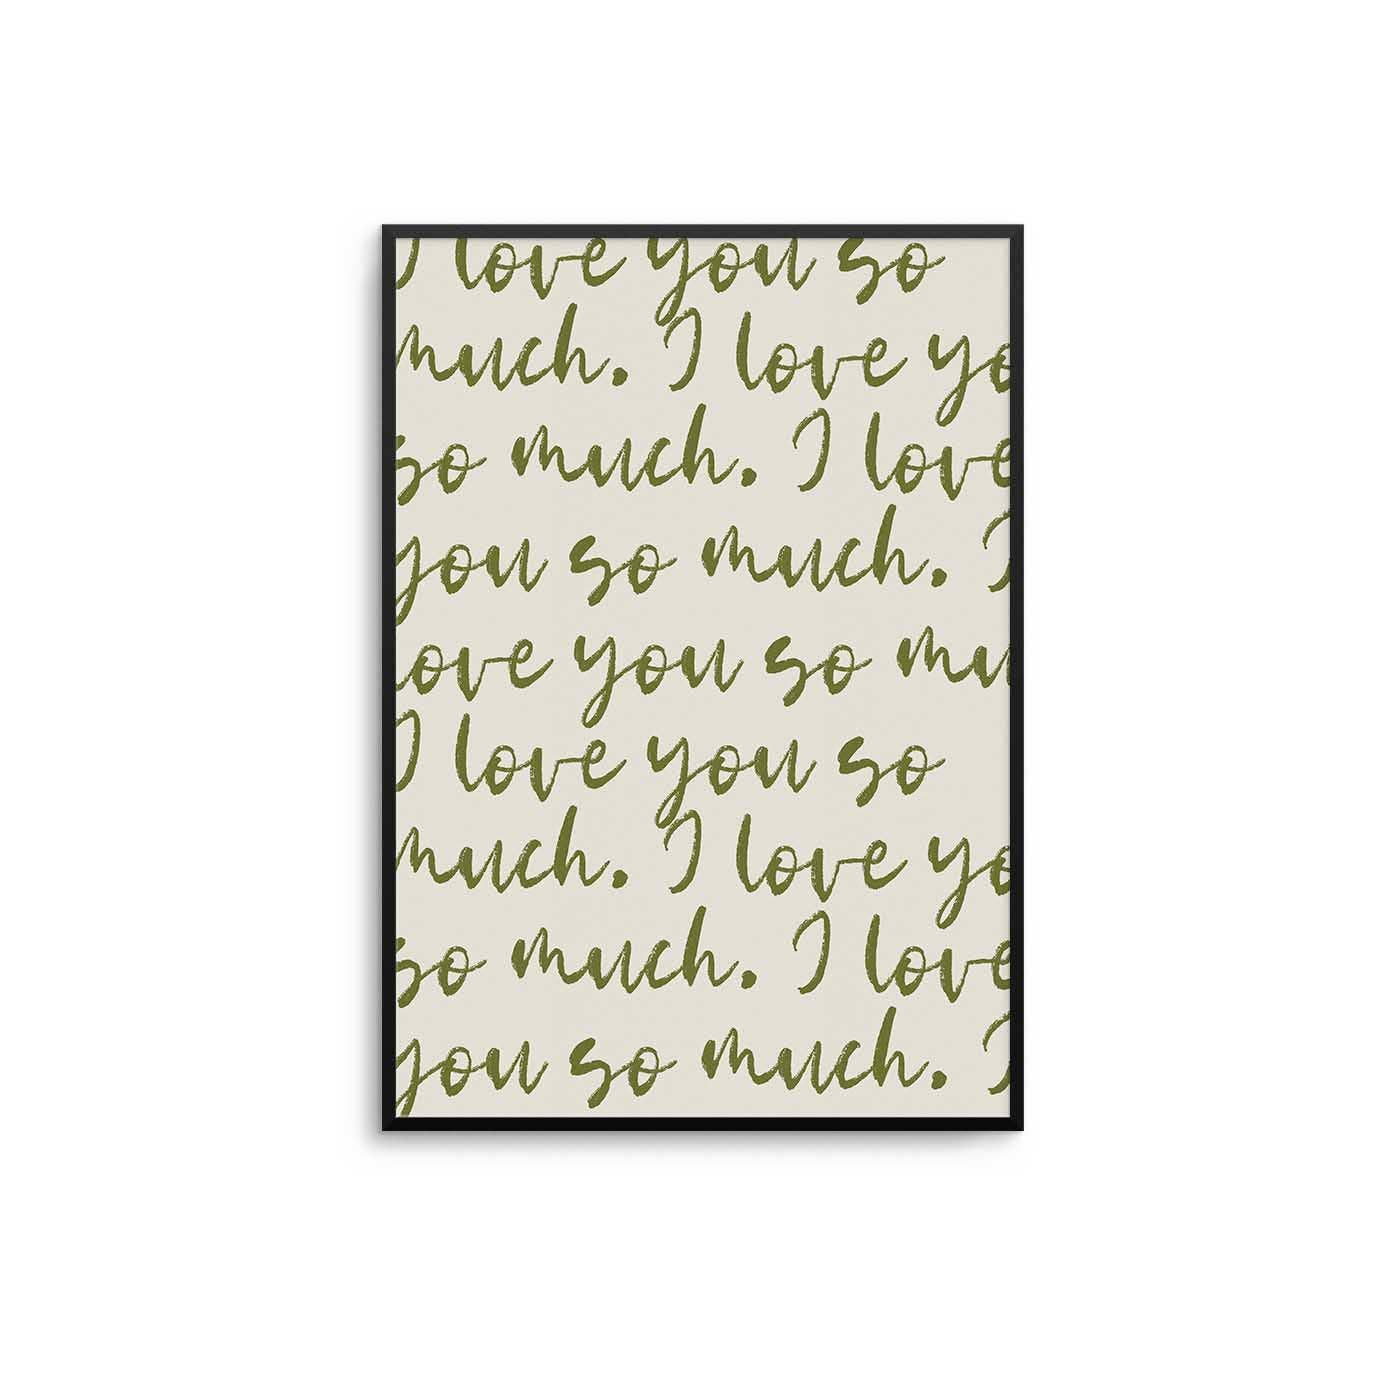 I love you so
much. I love yo
so much. I love
you so much. I
ove you so mu
I love you so
much. I love yo
so much. I love
you so much. I